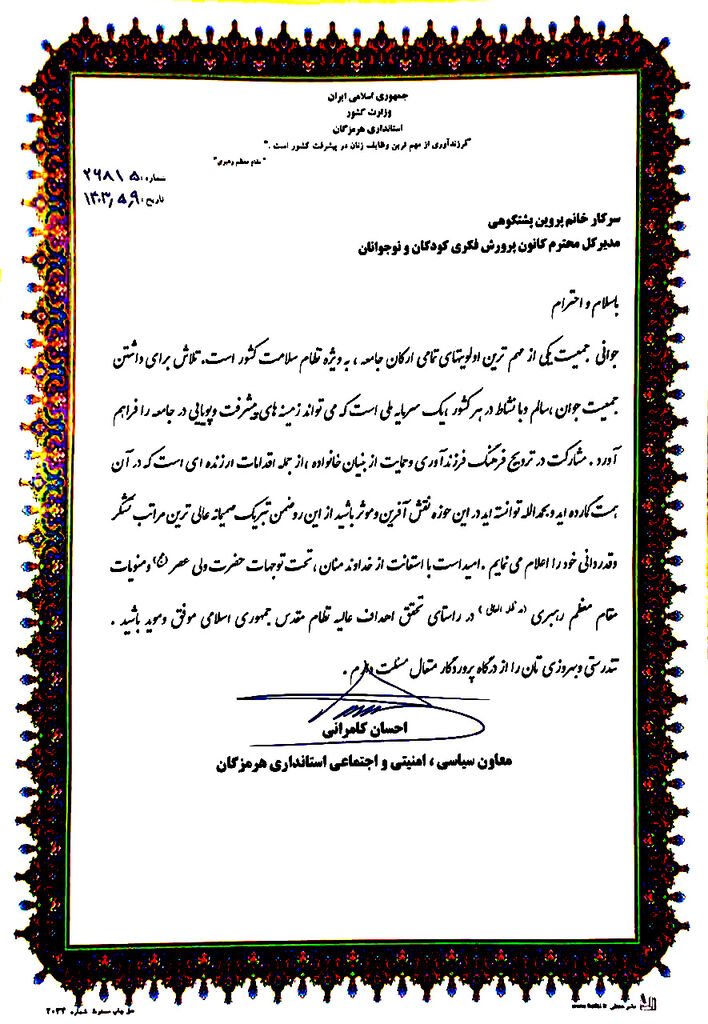 جمهوری اسلامی ایران
وزارت کشور
استانداری هرمزگان
"فرزندآوری از مهم ترین وظایف زنان در پیشرفت کشور است ."
"مقام معظم رهبری"
شماره: ۲۶۸۱۵
تاریخ: ۱۴۰۳،۵،۹
سرکار خانم پروین پشتکوهی
مدیرکل محترم کانون پرورش فکری کودکان و نوجوانان
باسلام و احترام
جوانی جمعیت یکی از مهم ترین اولویتهای تمامی ارکان جامعه ، به ویژه نظام سلامت کشور است. تلاش برای داشتن
جمعیت جوان ،سالم وبا نشاط در هر کشور ،یک سرمایه ملی است که می تواند زمینه های پیشرفت وپویایی در جامعه را فراهم
آورد . مشارکت در ترویج فرهنگ فرزندآوری وحمایت از بنیان خانواده ،از جمله اقدامات ارزنده ای است که در آن
همت گمارده اید وبحمدالله توانسته اید در این حوزه نقش آفرین وموثر باشید از این رو ضمن تبریک صمیمانه عالی ترین مراتب تشکر
وقدردانی خود را اعلام می نمایم .امید است با استعانت از خداوند منان ،تحت توجهات حضرت ولی عصر (عج) ومنویات
مقام معظم رهبری (مد ظله العالی) در راستای تحقق اهداف عالیه نظام مقدس جمهوری اسلامی موفق وموید باشید .
تندرستی وبهروزی تان را از درگاه پروردگار متعال مسئلت دارم .
احسان کامرانی
معاون سیاسی ، امنیتی و اجتماعی استانداری هرمزگان
حق چاپ محفوظ شماره ۲۰۳۴